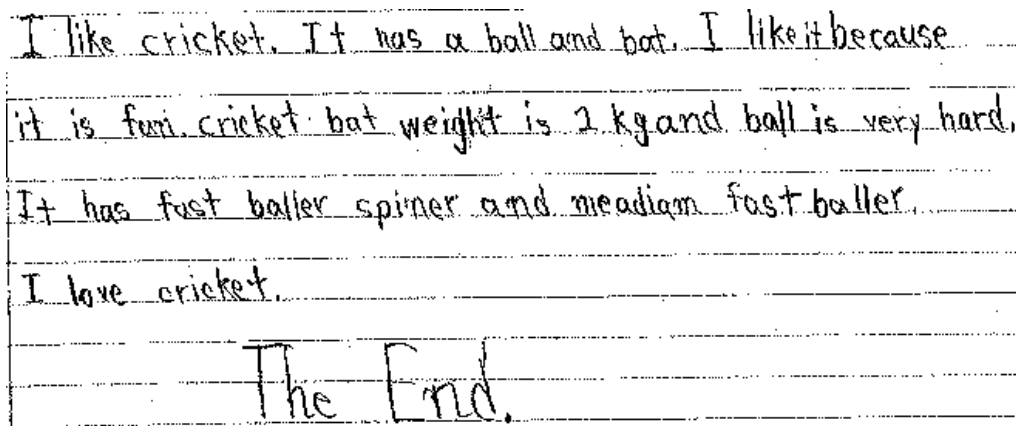 I like cricket. It has a ball and bat. I like it because
it is fun. cricket bat weight is 2 kg and ball is very hard.
It has fast baller spiner and meadiam fast baller.
I love cricket.
The End.